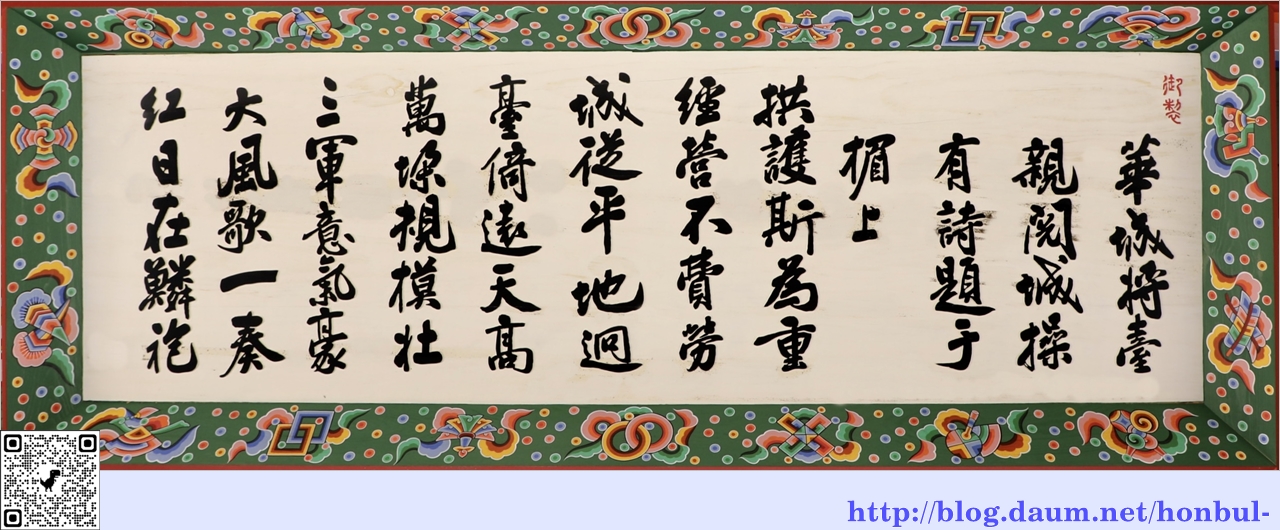 御製
華城將臺
親閱城操
有詩題于
楣上
拱護斯為重
經營不費勞
城從平地迥
臺倚遠天高
萬垜規模壯
三軍意氣豪
大風歌一奏
紅日在鱗袍
http://blog.daum.net/honbul-